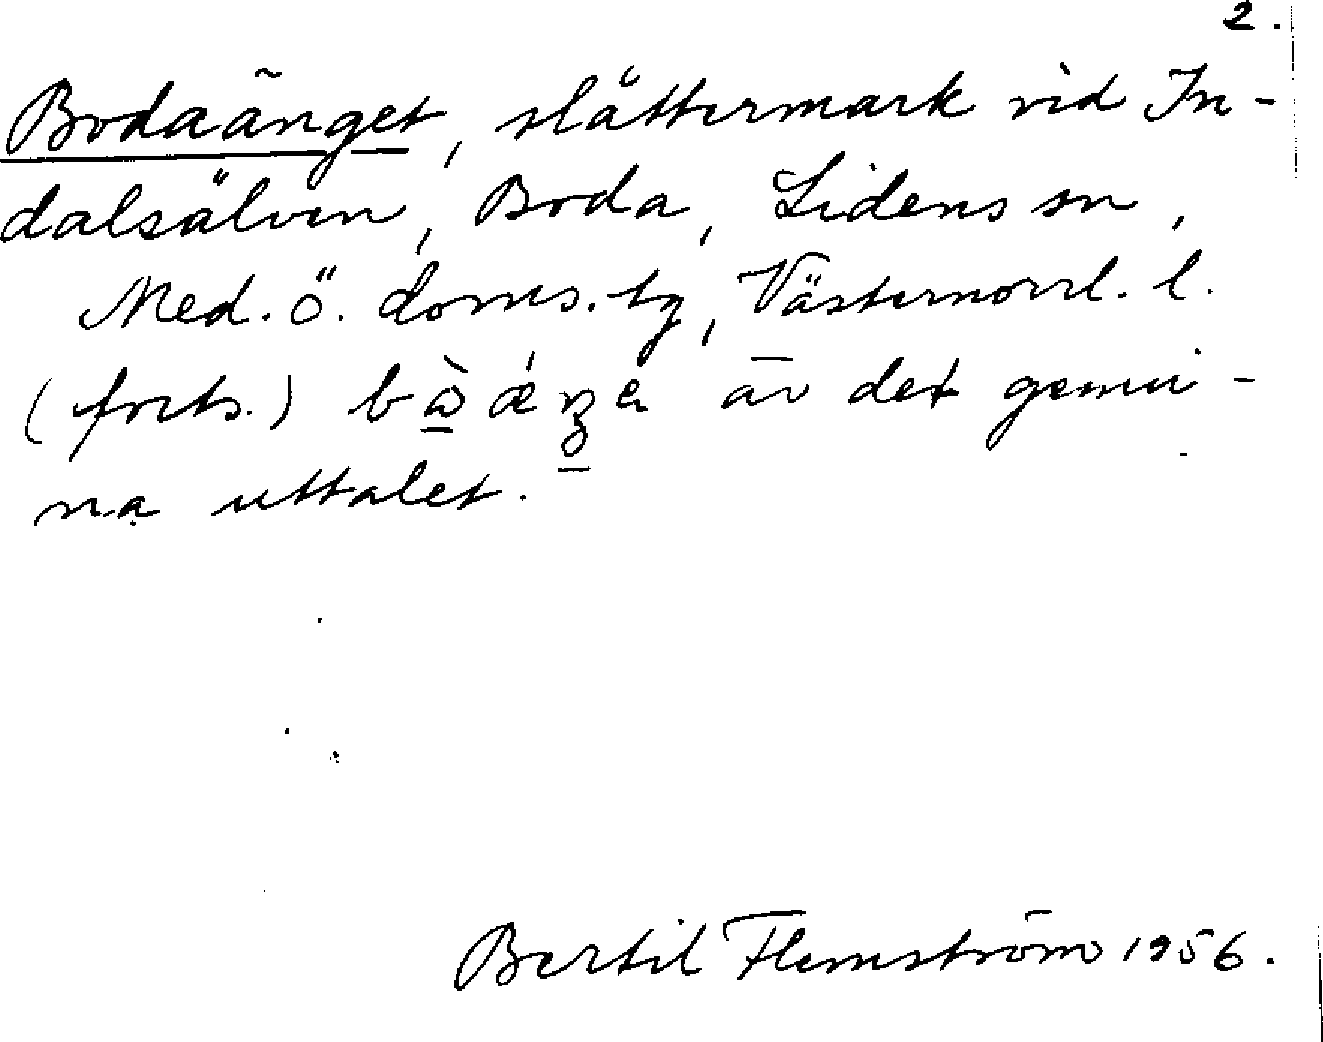 2.
Bodaänget, slåttermark vid In-
dalsälven, Boda, Lidens sn,
Med. Ö. doms. tg, Västernorrl. l.
(forts.) är det genui-
na uttalet.
Bertil Flemström 1956.